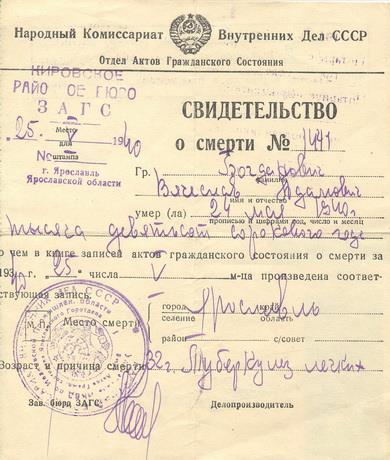 Народный Комиссариат Внутренних Дел СССР
Отдел Актов Гражданского Состояния
КИРОВСКОЕ
РАЙОННОЕ БЮРО
ЗАГС
25 V 1940
Место
или
№ штампа
г. Ярославль
Ярославской области
СВИДЕТЕЛЬСТВО
о смерти № 1141
Гр. Богданович
фамилия
Вячеслав Адамович
имя и отчество
умер (ла) мая 1940 г.
прописью и цифрами год, число и месяц
тысяча девятьсот сорокового года
о чем в книге записей актов гражданского состояния о смерти за
1940 г. 25 числа V м-ца произведена соответ-
ствующая запись.
М. П. Место смерти
город Ярославль край
селение область
район с/совет
Возраст и причина смерти 32 г. Туберкулез легких
Зав. бюро ЗАГС
Делопроизводитель